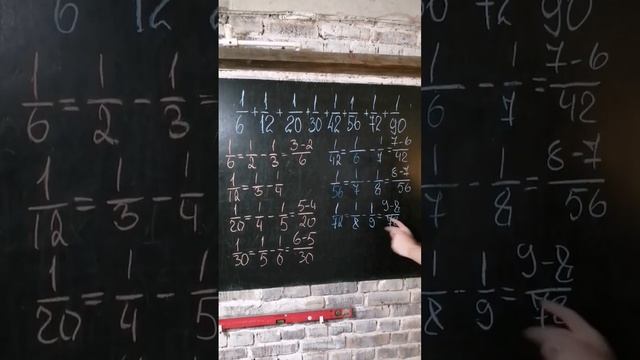 1/6 + 1/12 + 1/20 + 1/30 + 1/42 + 1/56 + 1/72 + 1/90
1/6 = 1/2 - 1/3 = 3-2/6
1/12 = 1/3 - 1/4
1/20 = 1/4 - 1/5 = 5-4/20
1/30 = 1/5 - 1/6 = 6-5/30
1/42 = 1/6 - 1/7 = 7-6/42
1/56 = 1/7 - 1/8 = 8-7/56
1/72 = 1/8 - 1/9 = 9-8/72